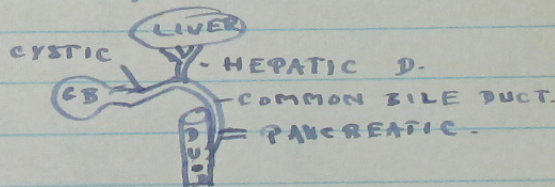 LIVER
CYSTIC
HEPATIC D.
GB
COMMON BILE DUCT.
PANCREATIC.
DUO